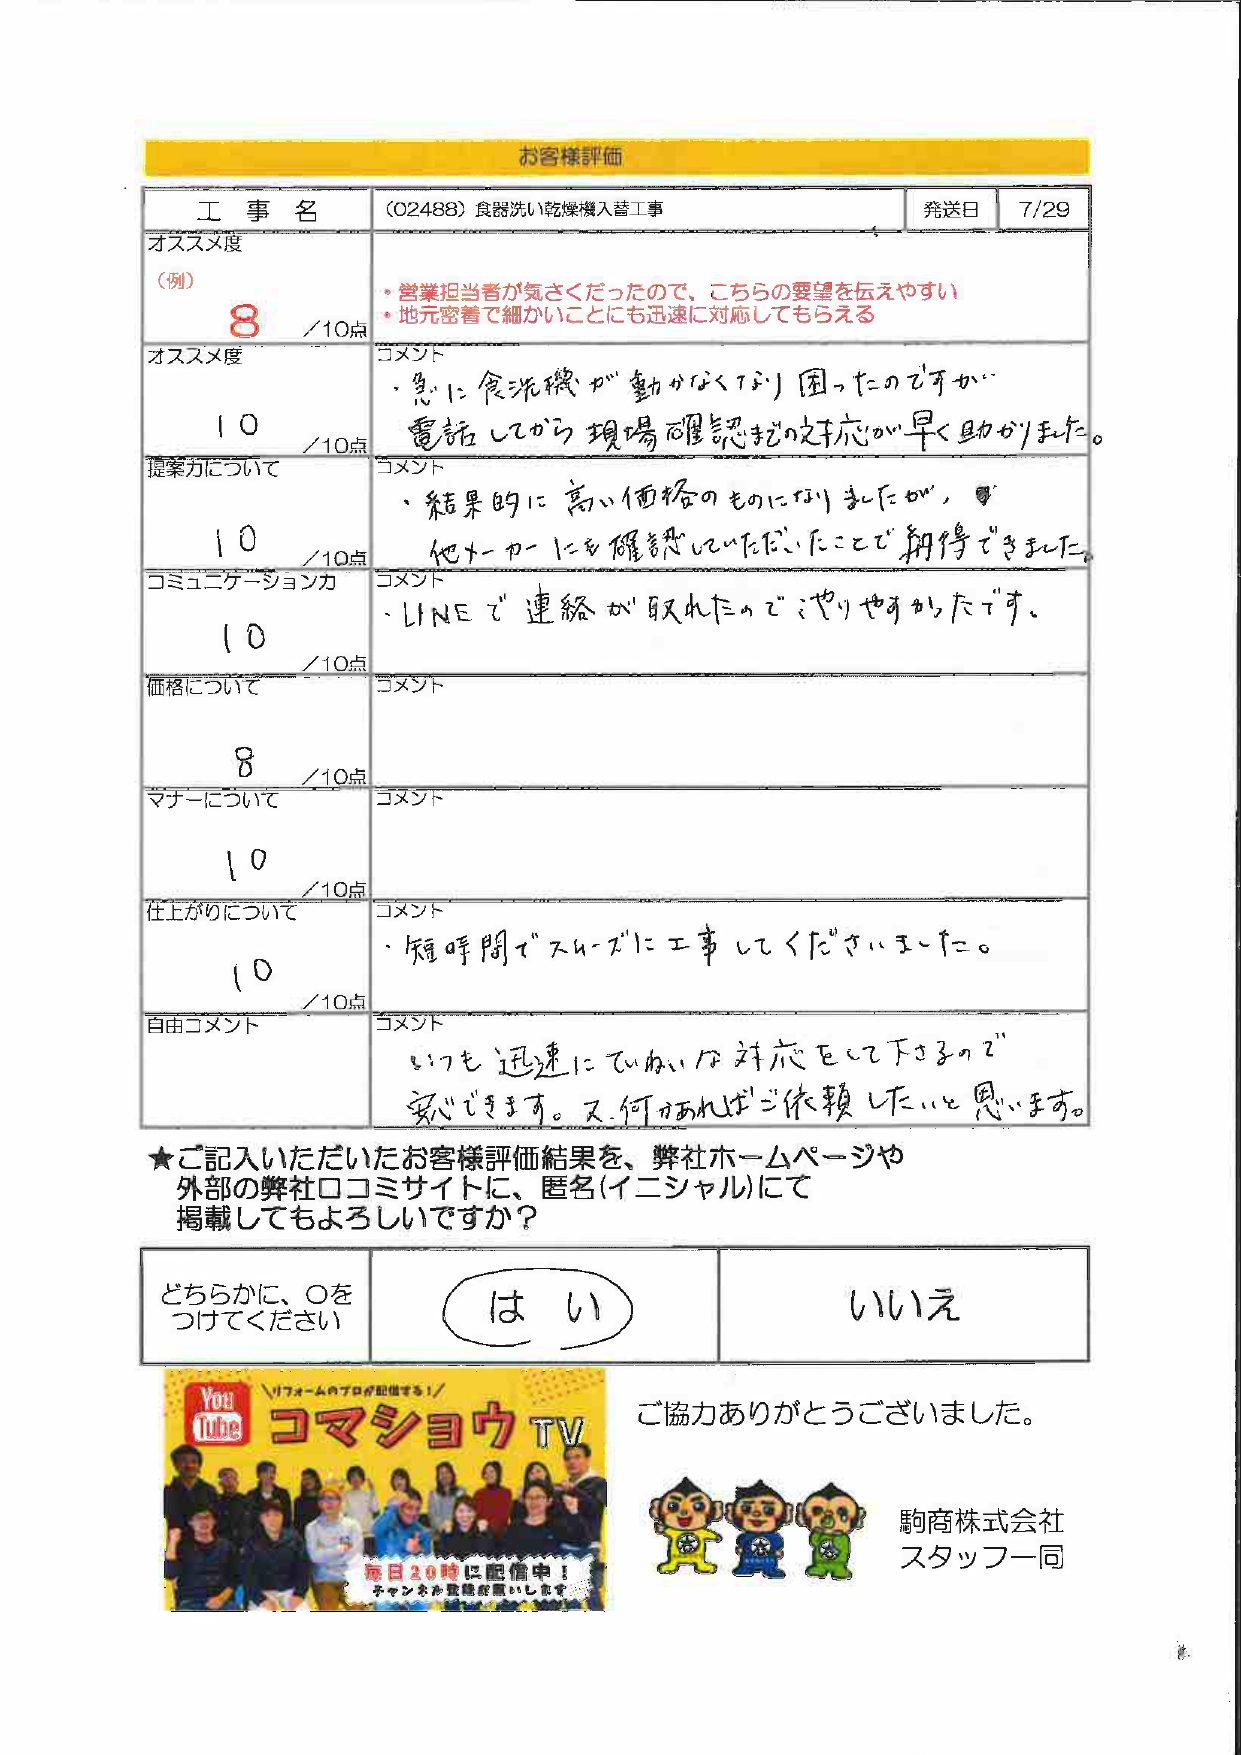 お客様評価
工 事 名 （02488）食器洗い乾燥機入替工事 発送日 7/29
オススメ度
（例）
8 ／10点
・営業担当者が気さくだったので、こちらの要望を伝えやすい
・地元密着で細かいことにも迅速に対応してもらえる
オススメ度 コメント
10 ／10点
・急に食洗機が動かなくなり困ったのですが…
電話してから現場確認までの対応が早く助かりました。
提案力について コメント
10 ／10点
・結果的に高い価格のものになりましたが、
他メーカーにも確認していただいたことで納得できました。
コミュニケーション力 コメント
10 ／10点
・LINEで連絡が取れたのでやりやすかったです。
価格について コメント
8 ／10点
マナーについて コメント
10 ／10点
仕上がりについて コメント
10 ／10点
・短時間でスムーズに工事してくださいました。
自由コメント コメント
いつも迅速にていねいな対応をして下さるので
安心できます。又、何かあればご依頼したいと思います。
★ご記入いただいたお客様評価結果を、弊社ホームページや
外部の弊社口コミサイトに、匿名(イニシャル)にて
掲載してもよろしいですか？
どちらかに、〇を
つけてください
は い
いいえ
You
Tube
＼リフォームのプロが配信する！／
コマショウTV
毎日20時に配信中！
チャンネル登録お願いします
ご協力ありがとうございました。
駒商株式会社
スタッフ一同